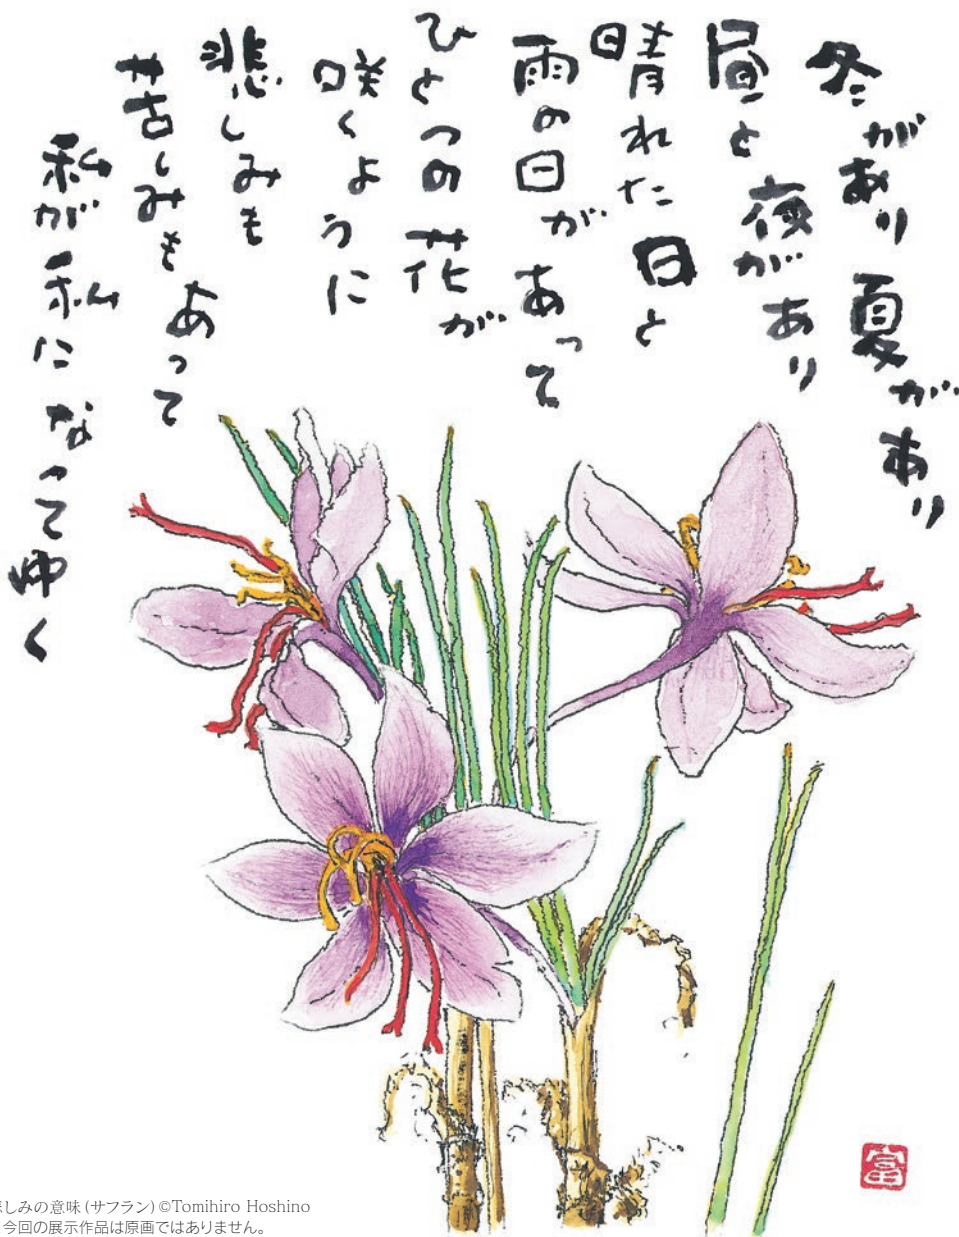 冬があり夏があり
昼と夜があり
晴れた日と
雨の日があって
ひとつの花が
咲くように
悲しみも
苦しみもあって
私が私になってゆく
富
悲しみの意味(サフラン)©Tomihiro Hoshino
今回の展示作品は原画ではありません。